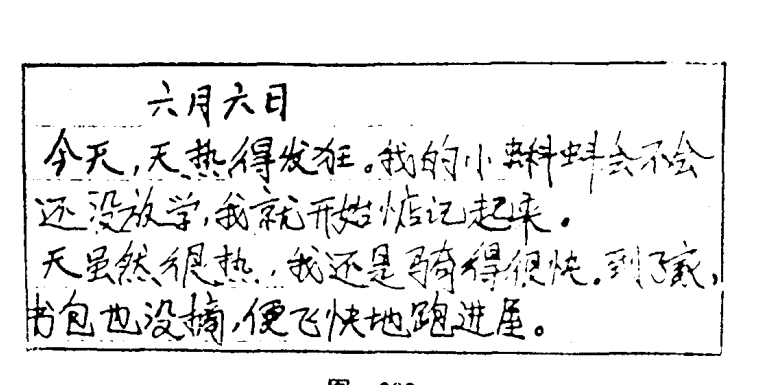 六月六日
今天,天热得发狂。我的小蝌蚪会不会
还没放学,我就开始惦记起来。
天虽然很热,我还是骑得很快.到了家,
书包也没摘,便飞快地跑进屋。
图